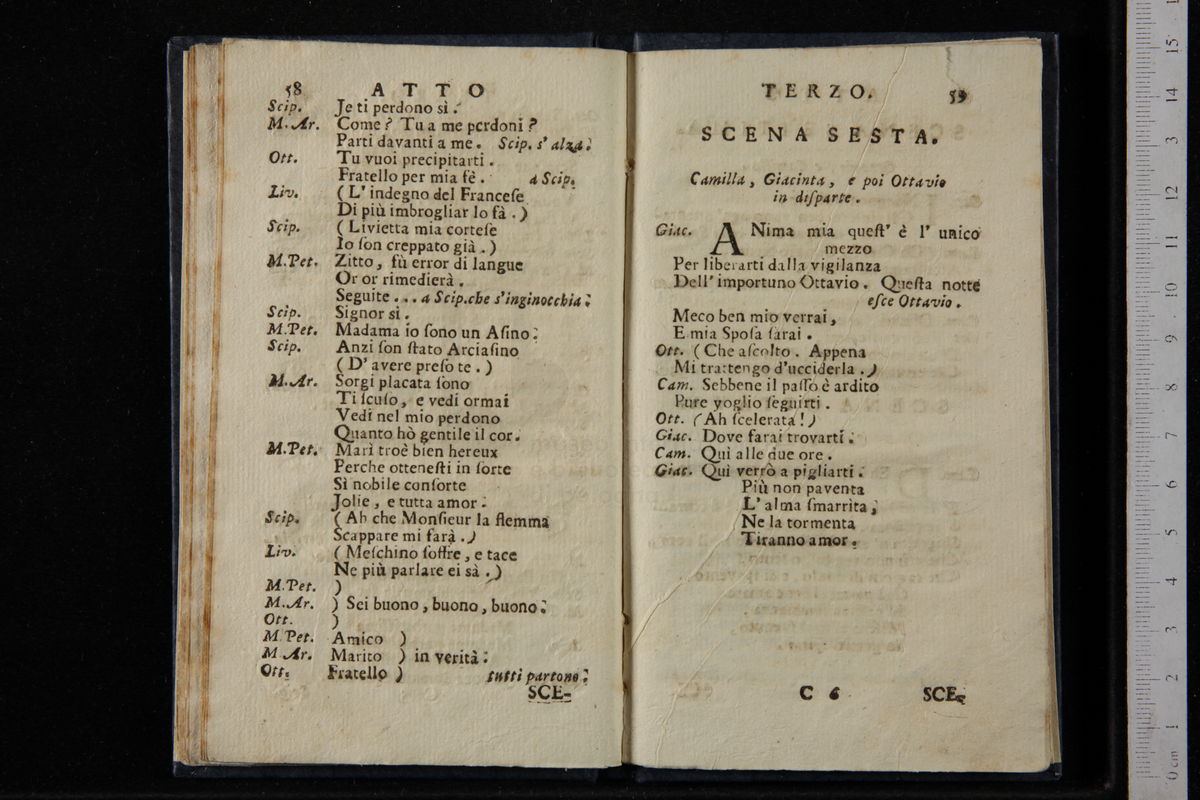 58 ATTO
Scip. Je ti perdono sì.
M. Ar. Come? Tu a me perdoni?
Parti davanti a me. Scip. s' alza.
Ott. Tu vuoi precipitarti.
Fratello per mia fè. a Scip.
Liv. (L' indegno del Franceſe
Di più imbrogliar lo fà.)
Scip. (Livietta mia corteſe
Io ſon creppato già.)
M. Pet. Zitto, fù error di langue
Or or rimedierà.
Seguite... a Scip. che s'inginocchia.
Scip. Signor si.
M. Pet. Madama io ſono un Aſino.
Scip. Anzi ſon ſtato Arciaſino
(D' avere preſo te.)
M. Ar. Sorgi placata ſono
Ti ſcuſo, e vedi ormai
Vedi nel mio perdono
Quanto hò gentile il cor.
M. Pet. Marì troè bien hereux
Perche otteneſti in ſorte
Sì nobile conſorte
Jolie, e tutta amor.
Scip. (Ah che Monſieur la flemma
Scappare mi farà.)
Liv. (Meſchino ſoffre, e tace
Ne più parlare ei sà.)
M. Pet. )
M. Ar. ) Sei buono, buono, buono.
Ott. )
M. Pet. Amico )
M Ar. Marito ) in verità.
Ott. Fratello ) tutti partono.
SCE-
TERZO. 59
SCENA SESTA.
Camilla, Giacinta, e poi Ottavio
in diſparte.
Giac. ANima mia queſt' è l' unico
mezzo
Per liberarti dalla vigilanza
Dell' importuno Ottavio. Queſta notte
eſce Ottavio.
Meco ben mio verrai,
E mia Spoſa farai.
Ott. (Che aſcolto. Appena
Mi trattengo d'ucciderla.)
Cam. Sebbene il paſſo è ardito
Pure voglio ſeguirti.
Ott. (Ah ſcelerata!)
Giac. Dove farai trovarti.
Cam. Quì alle due ore.
Giac. Quì verrò a pigliarti.
Più non paventa
L' alma ſmarrita,
Ne la tormenta
Tiranno amor.
C 6 SCE-